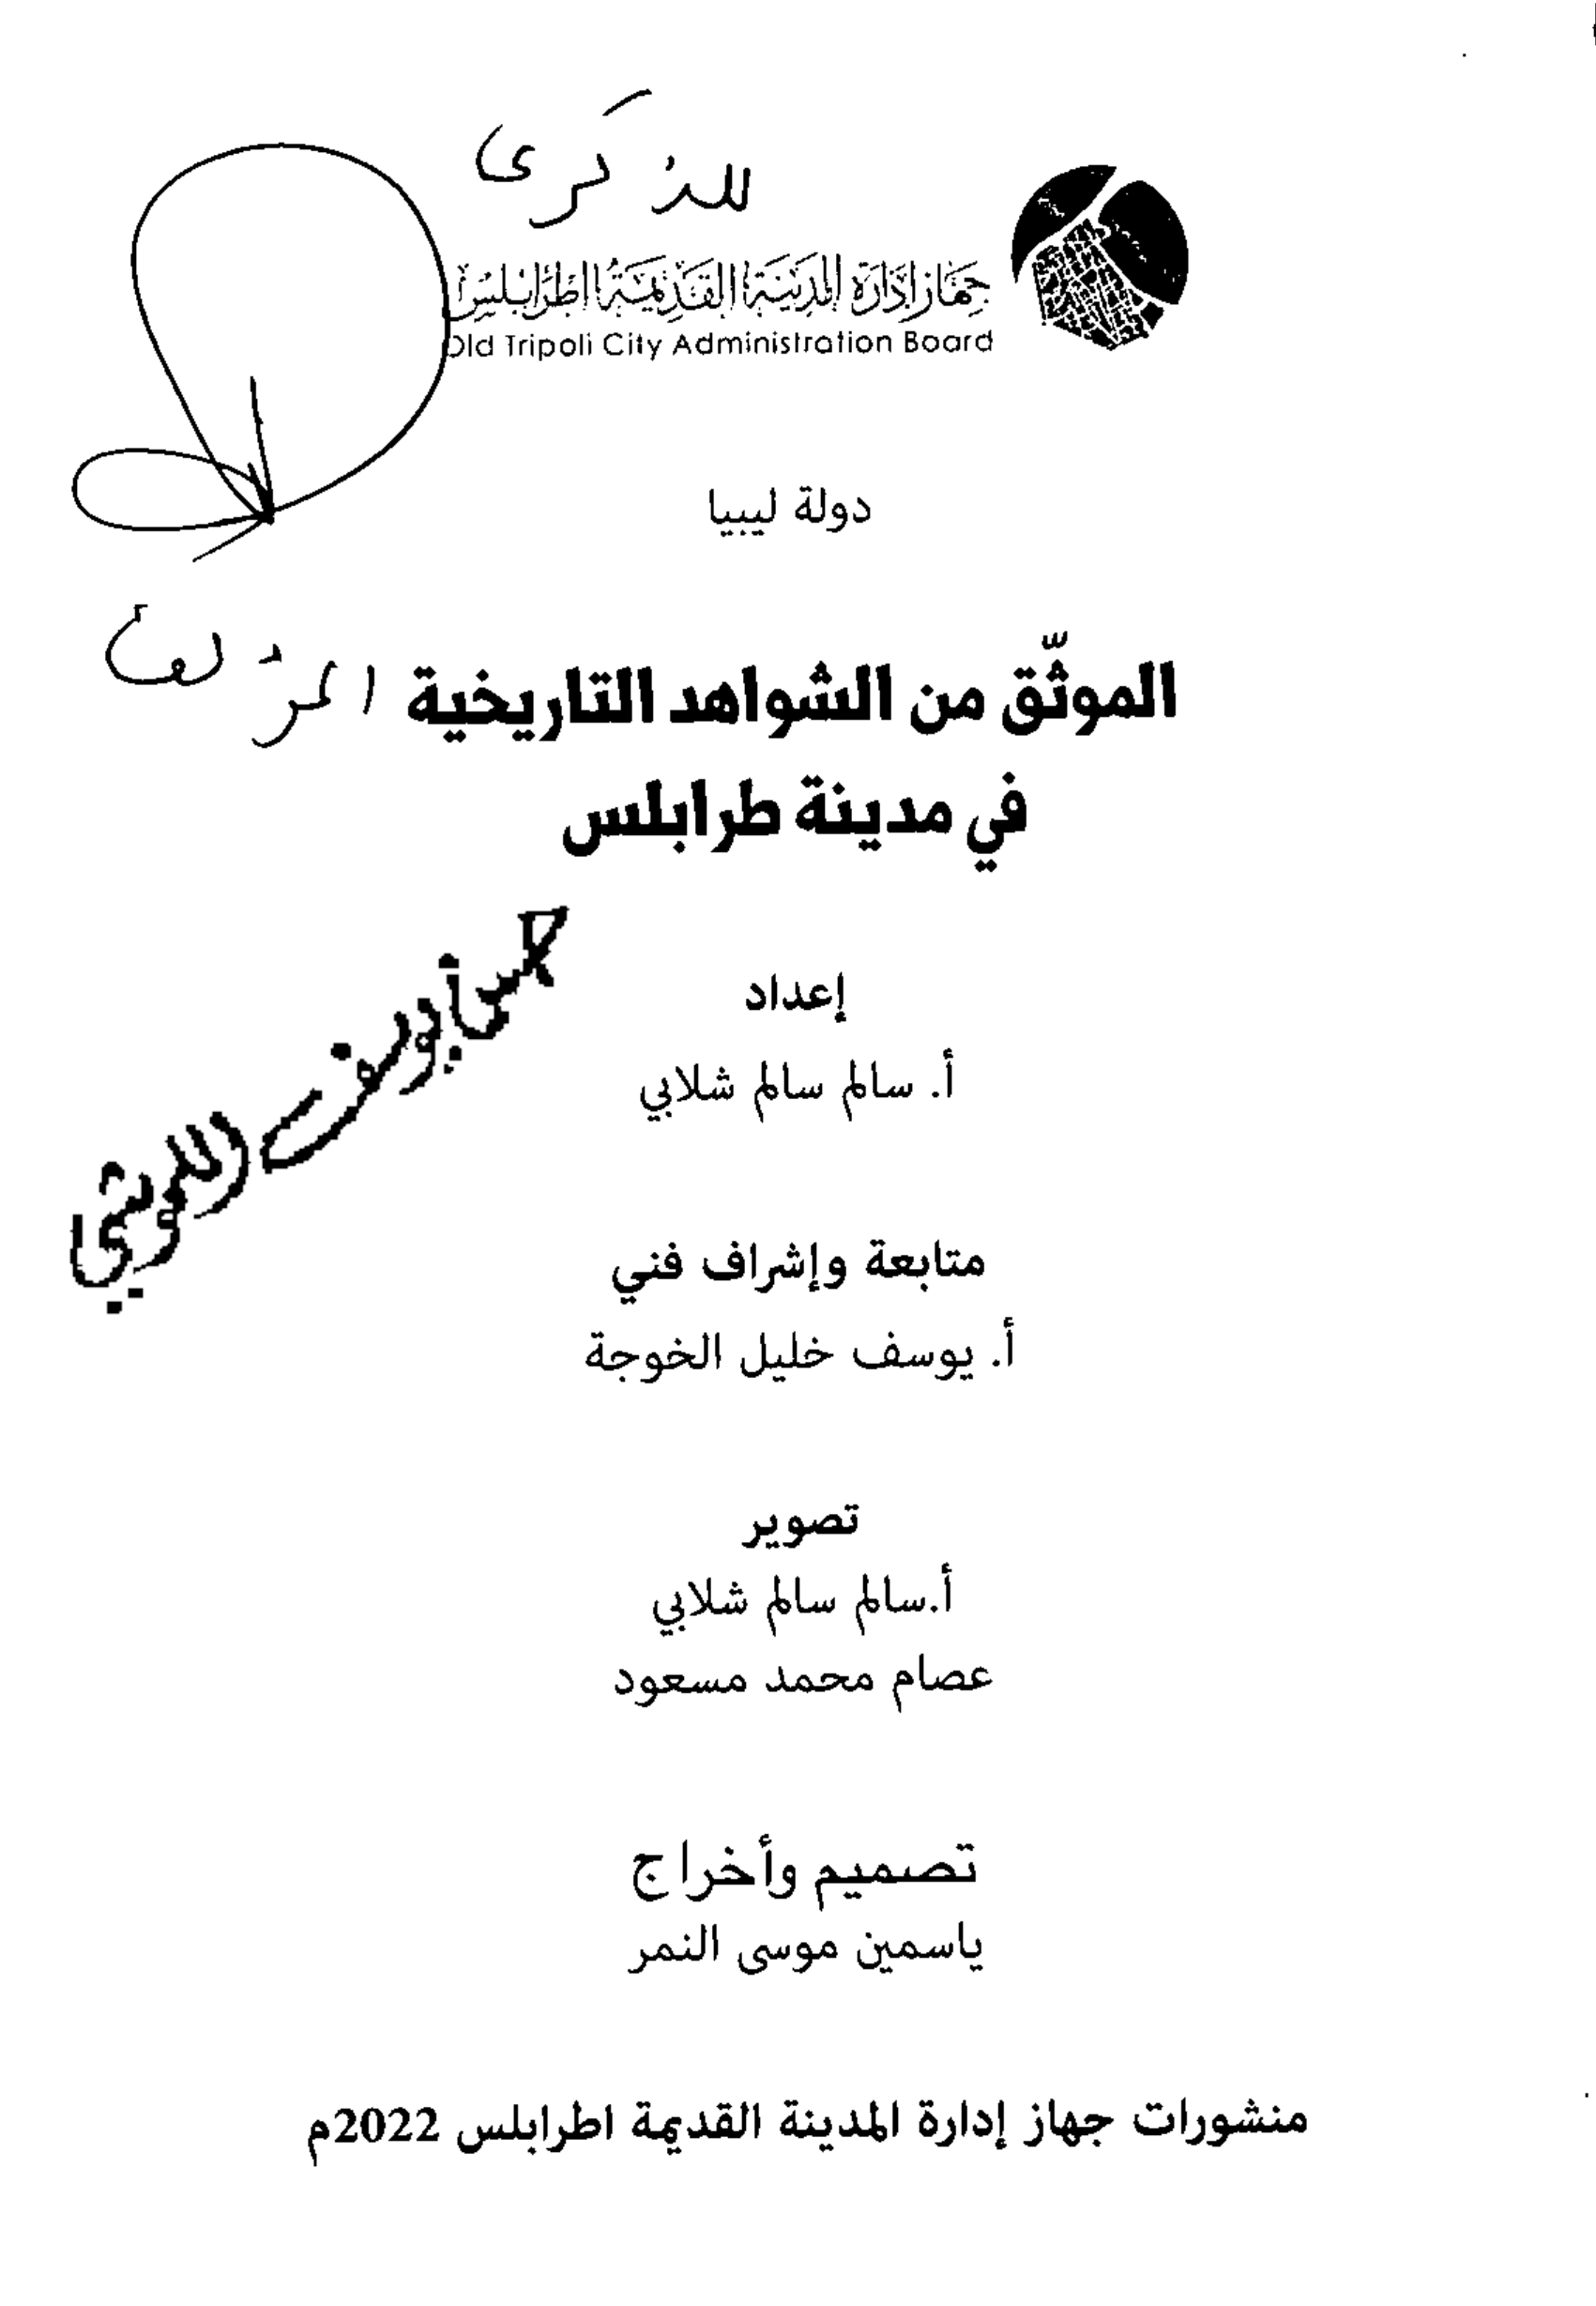 للذكرى
جهاز إدارة المدينة القديمة اطرابلس
Old Tripoli City Administration Board
دولة ليبيا
الموثّق من الشواهد التاريخية
المؤلف
في مدينة طرابلس
إعداد
أ. سالم سالم شلابي
متابعة وإشراف فني
أ. يوسف خليل الخوجة
تصوير
أ.سالم سالم شلابي
عصام محمد مسعود
تصميم وأخراج
ياسمين موسى النمر
منشورات جهاز إدارة المدينة القديمة اطرابلس 2022م